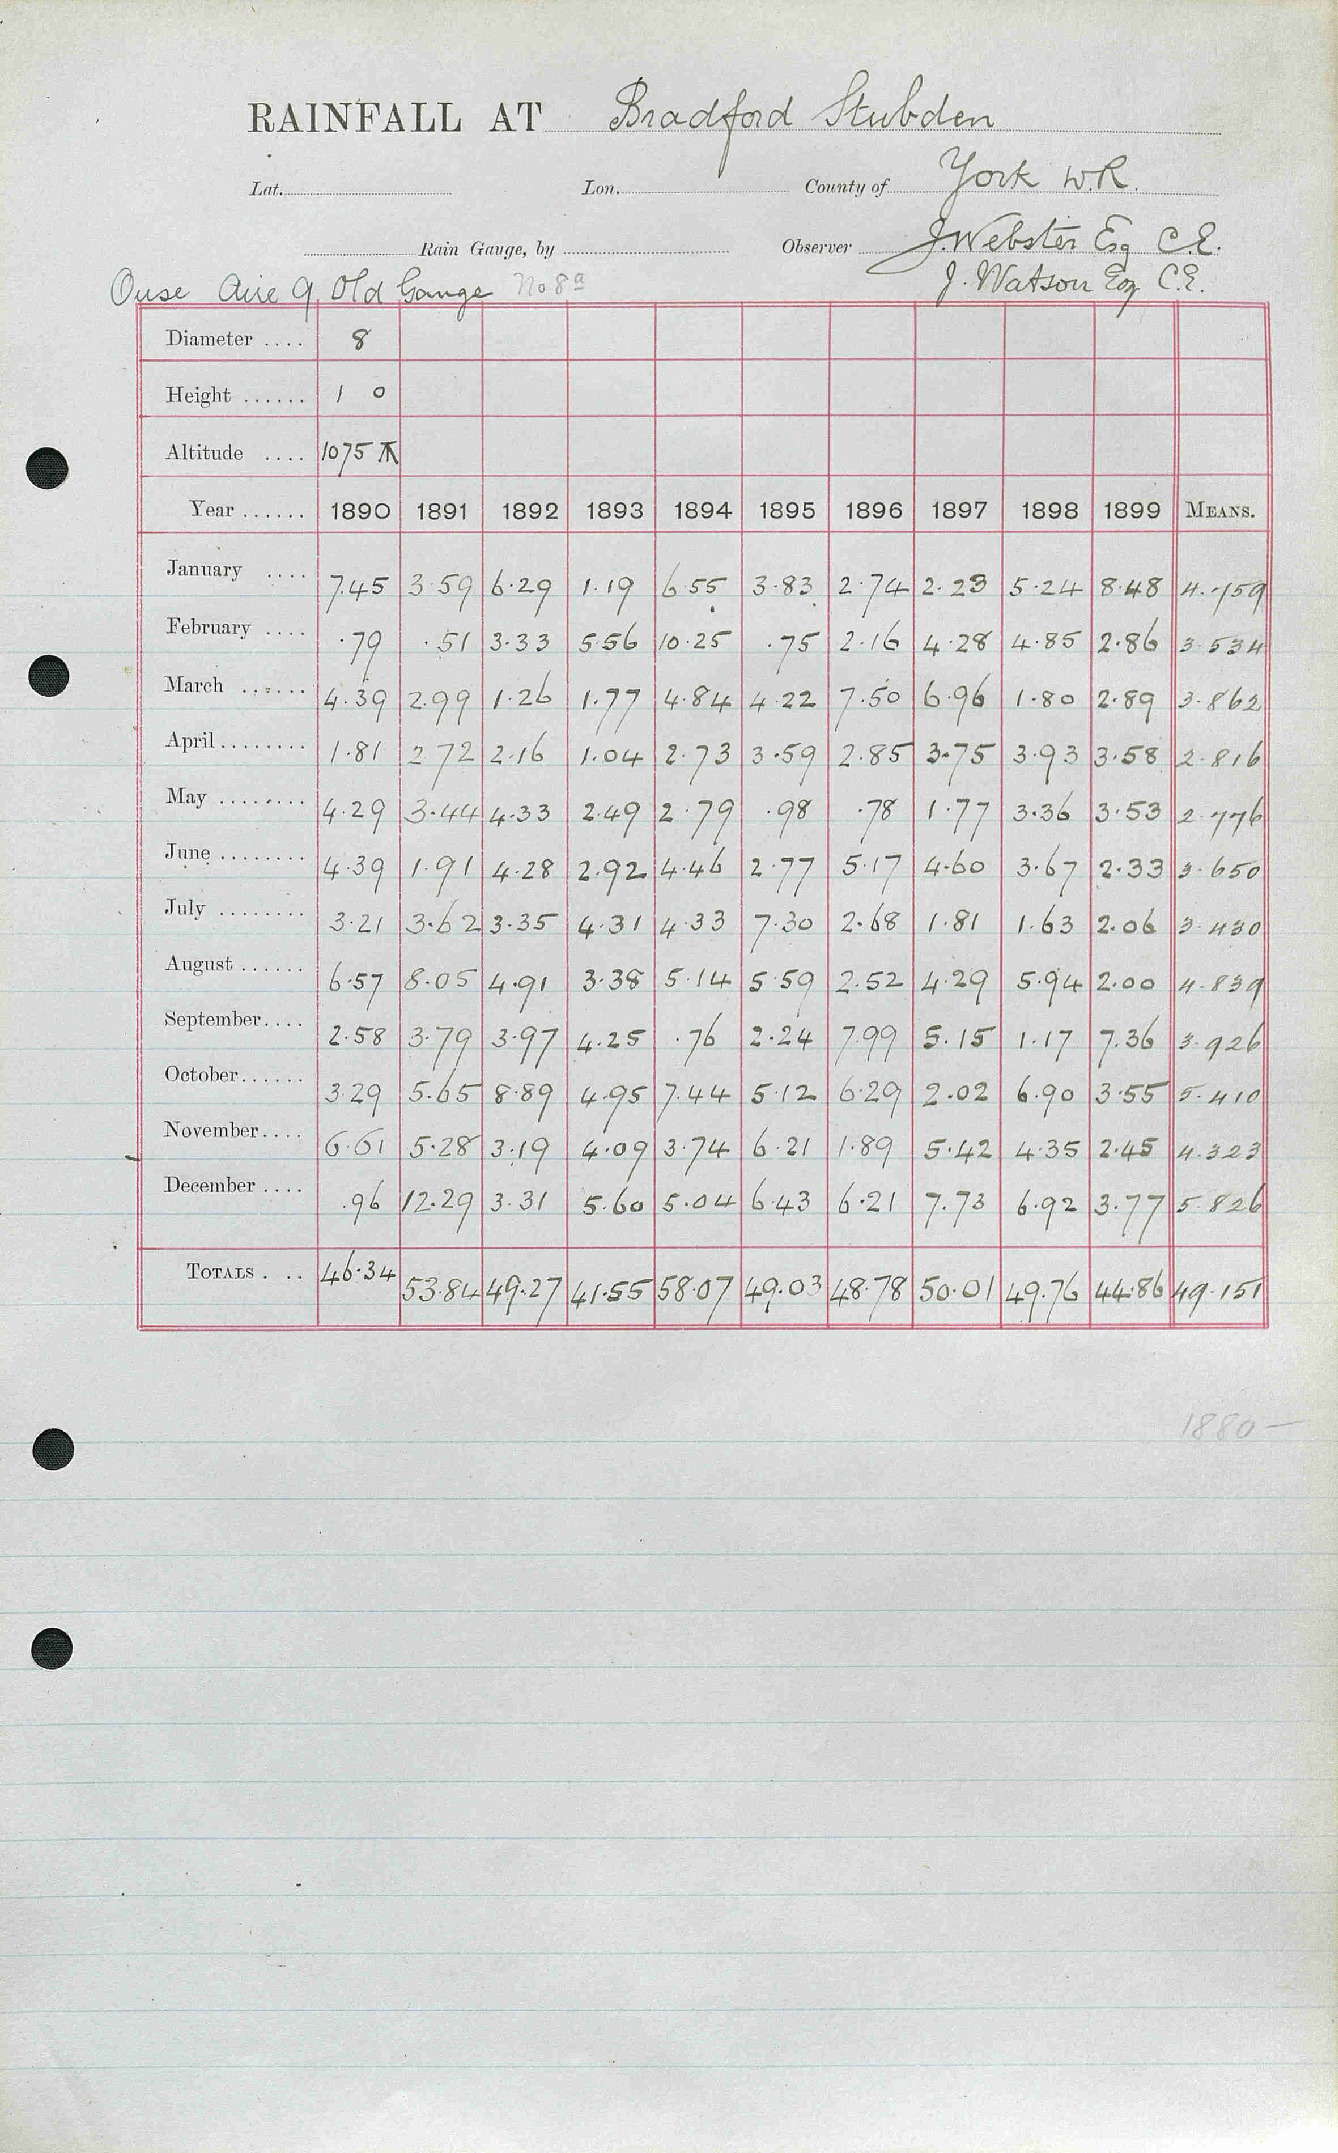 RAINFALL AT Bradford Stubden
Lat. Lon. County of York W.R.
Rain Gauge, by Observer J. Webster Esq C.E.
Ouse Aire 9 Old Gauge No 8a J. Watson Esq C.E.
Diameter .... 8
Height ...... 1 0
Altitude .... 1075
Year ...... 1890 1891 1892 1893 1894 1895 1896 1897 1898 1899 MEANS.
January .... 7.45 3.59 6.29 1.19 6.55 3.83 2.74 2.23 5.24 8.48 4.759
February .... .79 .51 3.33 5.56 10.25 .75 2.16 4.28 4.85 2.86 3.534
March ...... 4.39 2.99 1.26 1.77 4.84 4.22 7.50 6.96 1.80 2.89 3.862
April ........ 1.81 2.72 2.16 1.04 2.73 3.59 2.85 3.75 3.93 3.58 2.816
May ........ 4.29 3.44 4.33 2.49 2.79 .98 .78 1.77 3.36 3.53 2.776
June ........ 4.39 1.91 4.28 2.92 4.46 2.77 5.17 4.60 3.67 2.33 3.650
July ........ 3.21 3.62 3.35 4.31 4.33 7.30 2.68 1.81 1.63 2.06 3.430
August ...... 6.57 8.05 4.91 3.38 5.14 5.59 2.52 4.29 5.94 2.00 4.839
September.... 2.58 3.79 3.97 4.25 .76 2.24 7.99 5.15 1.17 7.36 3.926
October...... 3.29 5.65 8.89 4.95 7.44 5.12 6.29 2.02 6.90 3.55 5.410
November.... 6.61 5.28 3.19 4.09 3.74 6.21 1.89 5.42 4.35 2.45 4.323
December .... .96 12.29 3.31 5.60 5.04 6.43 6.21 7.73 6.92 3.77 5.826
TOTALS . .. 46.34 53.84 49.27 41.55 58.07 49.03 48.78 50.01 49.76 44.86 49.151
1880—